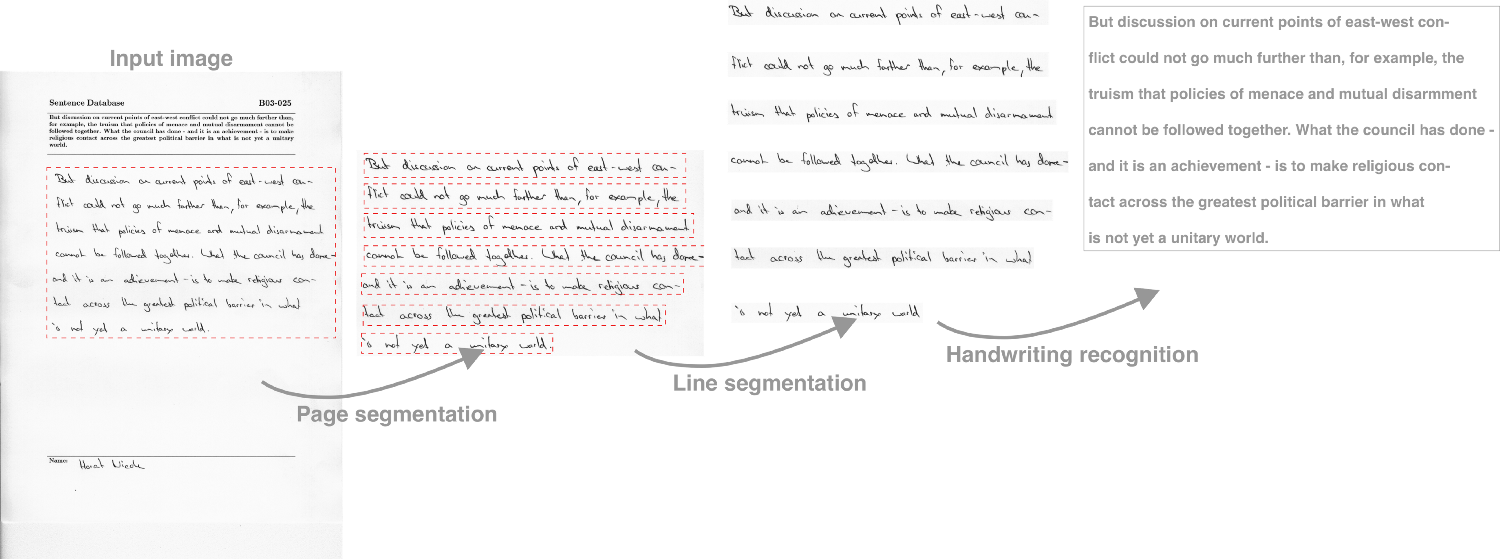 Input image
Sentence Database B03-025
But discussion on current points of east-west conflict could not go much further than,
for example, the truism that policies of menace and mutual disarmament cannot be
followed together. What the council has done - and it is an achievement - is to make
religious contact across the greatest political barrier in what is not yet a unitary
world.
But discussion on current points of east-west con-
flict could not go much further than, for example, the
truism that policies of menace and mutual disarmament
cannot be followed together. What the council has done-
and it is an achievement - is to make religious con-
tact across the greatest political barrier in what
is not yet a unitary world.
Name:
Page segmentation
But discussion on current points of east-west con-
flict could not go much further than, for example, the
truism that policies of menace and mutual disarmament
cannot be followed together. What the council has done-
and it is an achievement - is to make religious con-
tact across the greatest political barrier in what
is not yet a unitary world.
Line segmentation
But discussion on current points of east-west con-
flict could not go much further than, for example, the
truism that policies of menace and mutual disarmament
cannot be followed together. What the council has done-
and it is an achievement - is to make religious con-
tact across the greatest political barrier in what
is not yet a unitary world
Handwriting recognition
But discussion on current points of east-west con-
flict could not go much further than, for example, the
truism that policies of menace and mutual disarmment
cannot be followed together. What the council has done -
and it is an achievement - is to make religious con-
tact across the greatest political barrier in what
is not yet a unitary world.